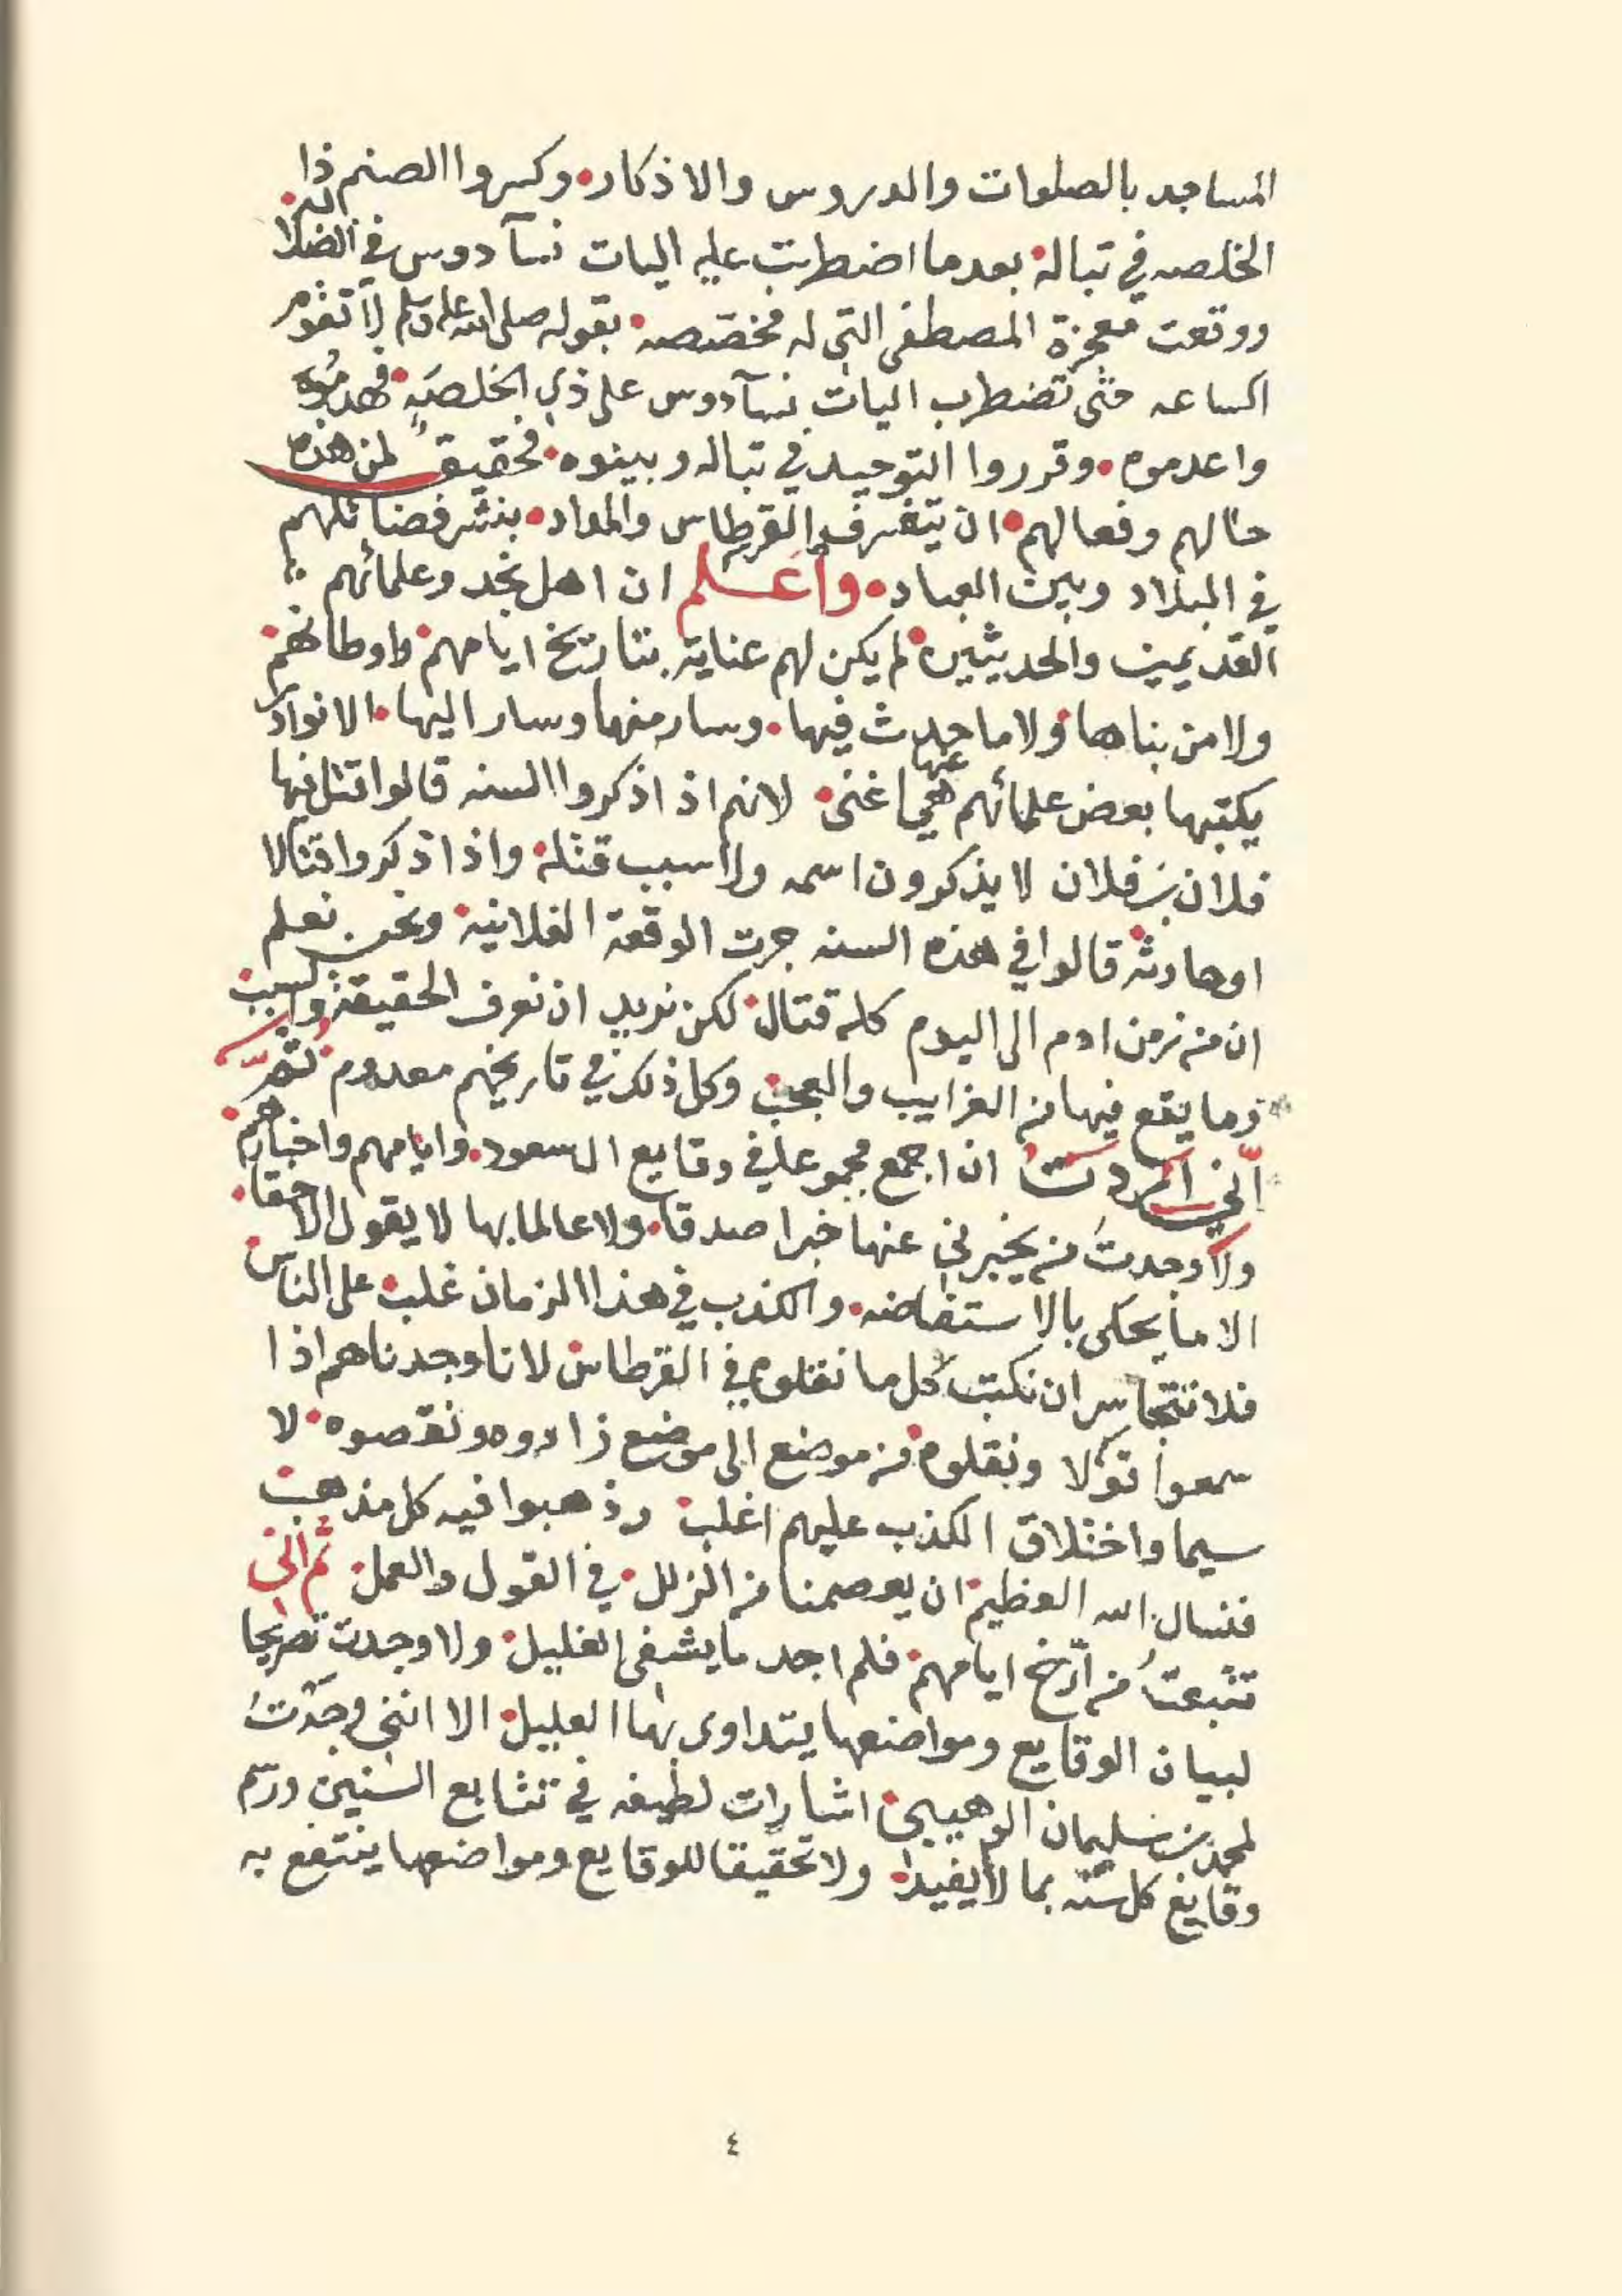 المساجد بالصلوات والدروس والاذكار. وكسروا الصنم ذا
الخلصه في تباله. بعدما اضطربت عليه اليات نسآ دوس في الضلالة.
ووقعت معجزة المصطفى التي له مخصصه. بقوله صلى الله عليه وسلم لا تقوم
الساعه حتى تضطرب اليات نسآ دوس على ذي الخلصه. فهدموه
واعدموه. وقرروا التوحيد في تباله وبينوه. فحقيق لمن هذه
حالهم وفعالهم. ان يتشرف القرطاس والمداد. بنشر فضائلهم
في البلاد وبين العباد. واعلم ان اهل نجد وعلمائهم
القديمين والحديثين. لم يكن لهم عناية بتاريخ ايامهم واوطانهم.
ولا من بناها ولا ما حدث فيها. وسار منها وسار اليها. الا نوادر
يكتبها بعض علمائهم هي عنها غنى. لانهم اذا ذكروا السنه قالوا قتل فيها
فلان بن فلان لا يذكرون اسمه ولا سبب قتله. واذا ذكروا قتالا
او حادثه قالوا في هذه السنه جرت الوقعة الفلانية. ونحن نعلم
ان من زمن ادم الى اليوم كله قتال. لكن نريد ان نعرف الحقيقة والسبب.
وما يقع فيها من الغرايب والعجب. وكل ذلك في تاريخهم معدوم. ثم
انني اردت ان اجمع مجموعا في وقايع ال سعود. وايامهم واخبارهم.
ولا وجدت من يخبرني عنها خبرا صدقا. ولا عالما بها لا يقول الا حقا.
الا ما يحكى بالاستفاضه. والكذب في هذا الزمان غلب على الناس.
فلا نتجاسر ان نكتب كل ما نقلوه في القرطاس. لانا وجدناهم اذا
سمعوا قولا ونقلوه من موضع الى موضع زادوه ونقصوه. لا
سيما واختلاق الكذب عليهم اغلب. وذهبوا فيه كل مذهب.
فنسال الله العظيم. ان يعصمنا من الزلل. في القول والعمل. ثم اني
تتبعت من ارخ ايامهم. فلم اجد ما يشفى الغليل. ولا وجدت تصريحا
لبيان الوقايع ومواضعها يتداوى بها العليل. الا انني وجدت
لمحمد بن سليمان الوهيبي. اشارات لطيفه في تتابع السنين ورسم
وقايع كل سنه بما لا يفيد. ولا تحقيقا للوقايع ومواضعها ينتفع به
٤